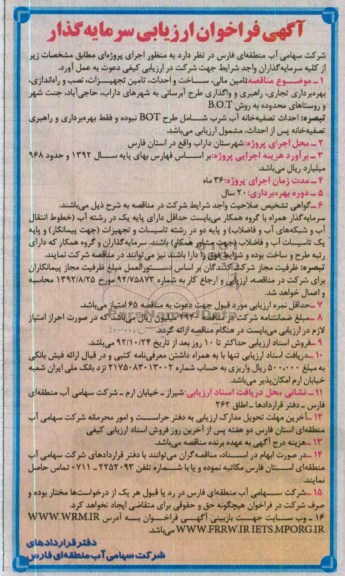 آگهی فراخوان ارزیابی سرمایه‌گذار
شرکت سهامی آب منطقه‌ای فارس در نظر دارد به منظور اجرای پروژه‌ای مطابق مشخصات زیر
از کلیه سرمایه‌گذاران واجد شرایط جهت شرکت در ارزیابی کیفی دعوت به عمل آورد.
۱ـ موضوع مناقصه: تامین مالی، ساخت و احداث، تامین تجهیزات، نصب و راه‌اندازی،
بهره‌برداری تجاری، راهبری و واگذاری طرح آبرسانی به شهرهای داراب، حاجی‌آباد، جنت شهر
و روستاهای محدوده به روش B.O.T
تبصره: احداث تصفیه‌خانه آب شرب شامل طرح BOT نبوده و فقط بهره‌برداری و راهبری
تصفیه‌خانه پس از احداث، مشمول ارزیابی می‌باشد.
۲ـ محل اجرای پروژه: شهرستان داراب واقع در استان فارس
۳ـ برآورد هزینه اجرایی پروژه: بر اساس فهارس بهای پایه سال ۱۳۹۲ و حدود ۹۶۸
میلیارد ریال می‌باشد.
۴ـ مدت زمان اجرای پروژه: ۳۶ ماه
۵ـ دوره بهره‌برداری: ۲۰ سال
۶ـ گواهی تشخیص صلاحیت واجد شرایط شرکت در مناقصه به شرح ذیل می‌باشند.
سرمایه‌گذار همراه با گروه همکار می‌بایست حداقل دارای پایه یک در رشته آب (خطوط انتقال
آب و شبکه‌های آب و فاضلاب) و پایه دو در رشته تاسیسات و تجهیزات (جهت پیمانکار) و پایه
یک تاسیسات آب و فاضلاب (جهت مشاور همکار) باشند. سرمایه‌گذاران و گروه همکار که دارای
رتبه طرح و ساخت بوده و شرایط فوق را دارا باشند نیز می‌توانند در مناقصه شرکت نمایند.
تبصره: ظرفیت مجاز شرکت‌کنندگان بر اساس دستورالعمل مبلغ ظرفیت مجاز پیمانکاران
برای شرکت در مناقصه، ارزیابی و ارجاع کار به شماره ۹۲/۷۵۸۷۳ مورخ ۱۳۹۲/۸/۲۵ محاسبه
و اعمال خواهد شد.
۷ـ حداقل نمره ارزیابی مورد قبول جهت دعوت به مناقصه ۶۵ امتیاز می‌باشد.
۸ـ مبلغ ضمانتنامه شرکت در مناقصه میلیون ریال می‌باشد که در صورت احراز امتیاز
لازم در ارزیابی می‌بایست در هنگام مناقصه ارائه گردد.
۹ـ فروش اسناد ارزیابی حداکثر تا ۱۰ روز بعد از تاریخ ۹۲/۱۰/۲۴ می‌باشد.
۱۰ـ دریافت اسناد ارزیابی تنها با به همراه داشتن معرفی‌نامه کتبی و در قبال ارائه فیش بانکی
به مبلغ ۵۰۰,۰۰۰ ریال واریزی به حساب شماره ۲۱۷۵۰۸۳۰۱۳۰۰۲ نزد بانک ملی ایران شعبه
خیابان ارم امکان‌پذیر می‌باشد.
۱۱ـ نشانی محل دریافت اسناد ارزیابی: شیراز ـ خیابان ارم ـ شرکت سهامی آب منطقه‌ای
فارس ـ دفتر قراردادها ـ اطاق ۲۶۲
۱۲ـ آخرین مهلت تحویل مدارک ارزیابی به دفتر حراست و امور محرمانه شرکت سهامی آب
منطقه‌ای استان فارس دو هفته پس از آخرین روز فروش اسناد ارزیابی کیفی
۱۳ـ هزینه درج آگهی به عهده برنده مناقصه می‌باشد.
۱۴ـ در صورت ابهام در اسناد، مناقصه‌گران می‌توانند با دفتر قراردادهای شرکت سهامی آب
منطقه‌ای استان فارس مکاتبه نموده و یا با شماره تلفن ۲۲۵۲۰۹۳ ـ ۰۷۱۱ تماس حاصل
نمایند.
۱۵ـ شرکت سهامی آب منطقه‌ای فارس در رد یا قبول هر یک از درخواست‌ها مختار بوده و
صرف شرکت در فراخوان هیچگونه حق و حقوقی برای متقاضی ایجاد نخواهد کرد.
۱۶ـ وب سایت جهت بازبینی آگهی فراخوان به آدرس WWW.WRM.IR
WWW.FRRW.IR IETS.MPORG.IR می‌باشد.
دفتر قراردادهای
شرکت سهامی آب منطقه‌ای فارس